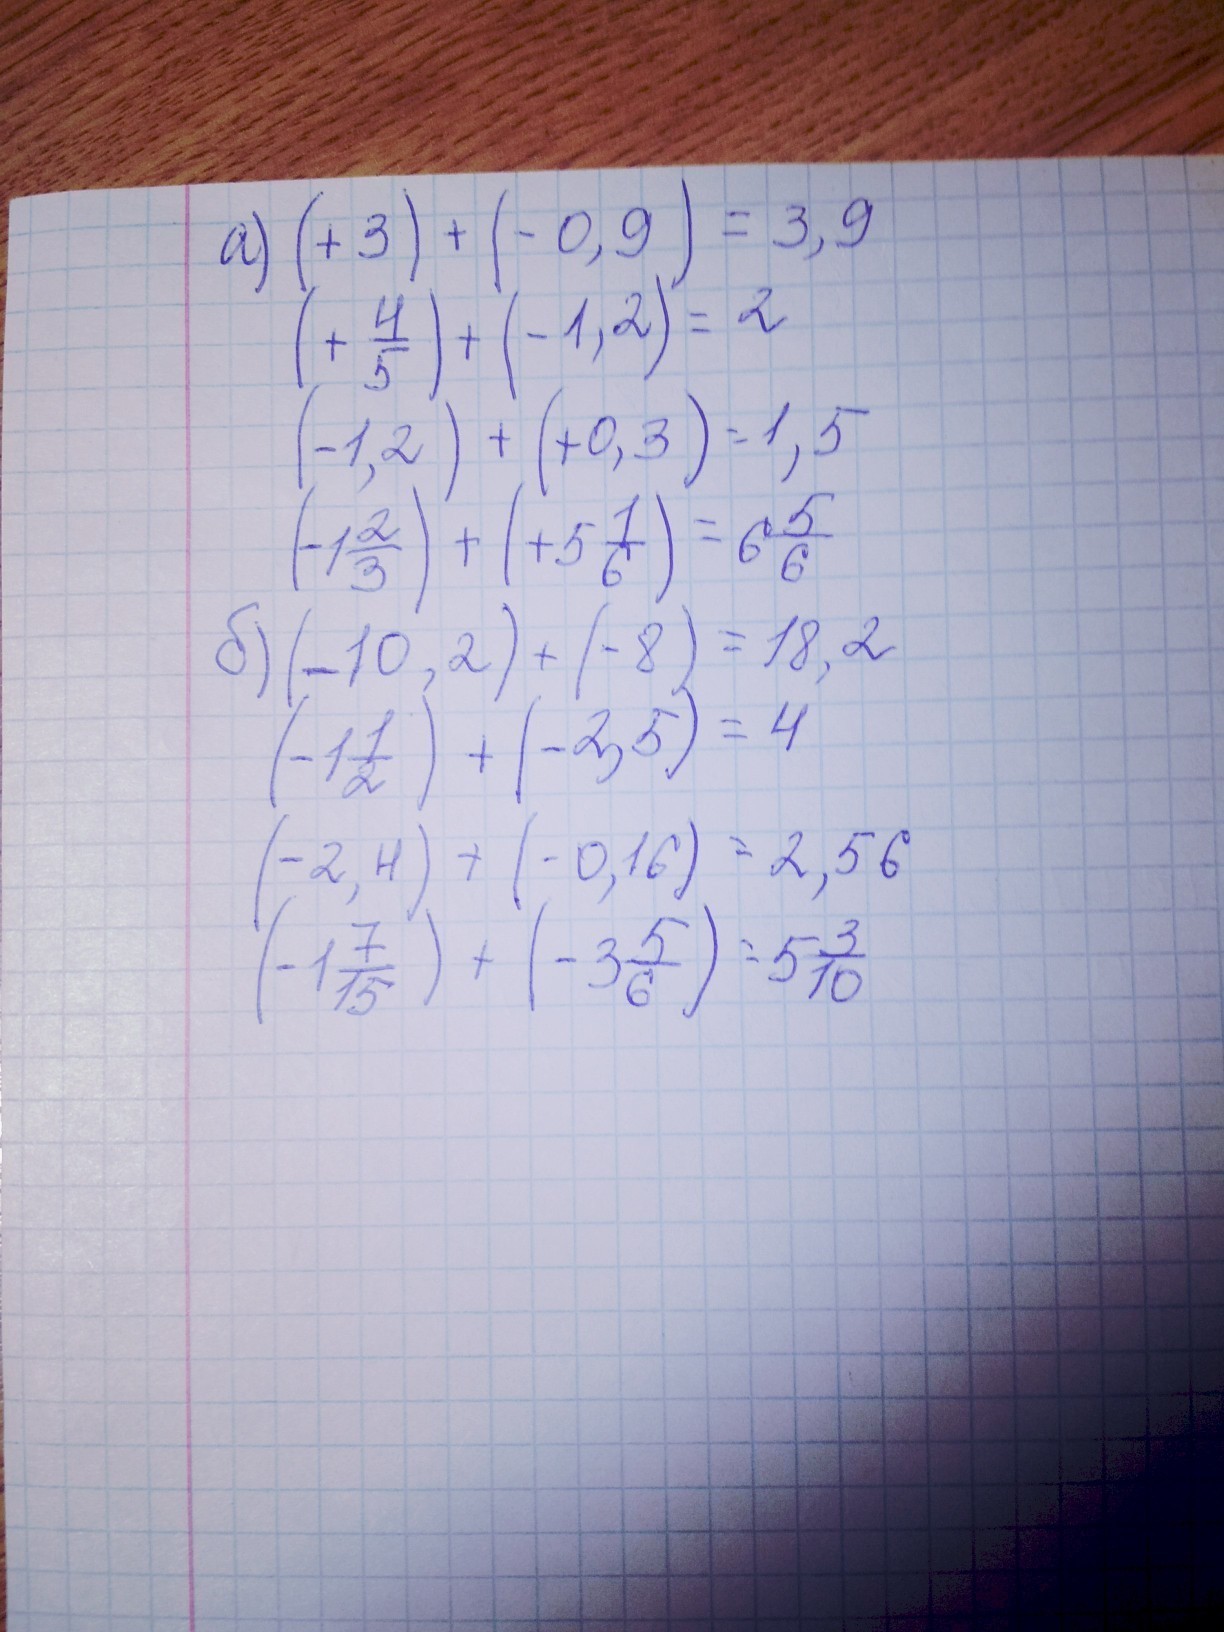 а) (+3) + (-0,9) = 3,9
(+ 4/5) + (-1,2) = 2
(-1,2) + (+0,3) = 1,5
(-1 2/3) + (+5 1/6) = 6 5/6
б) (-10,2) + (-8) = 18,2
(-1 1/2) + (-2,5) = 4
(-2,4) + (-0,16) = 2,56
(-1 7/15) + (-3 5/6) = 5 3/10